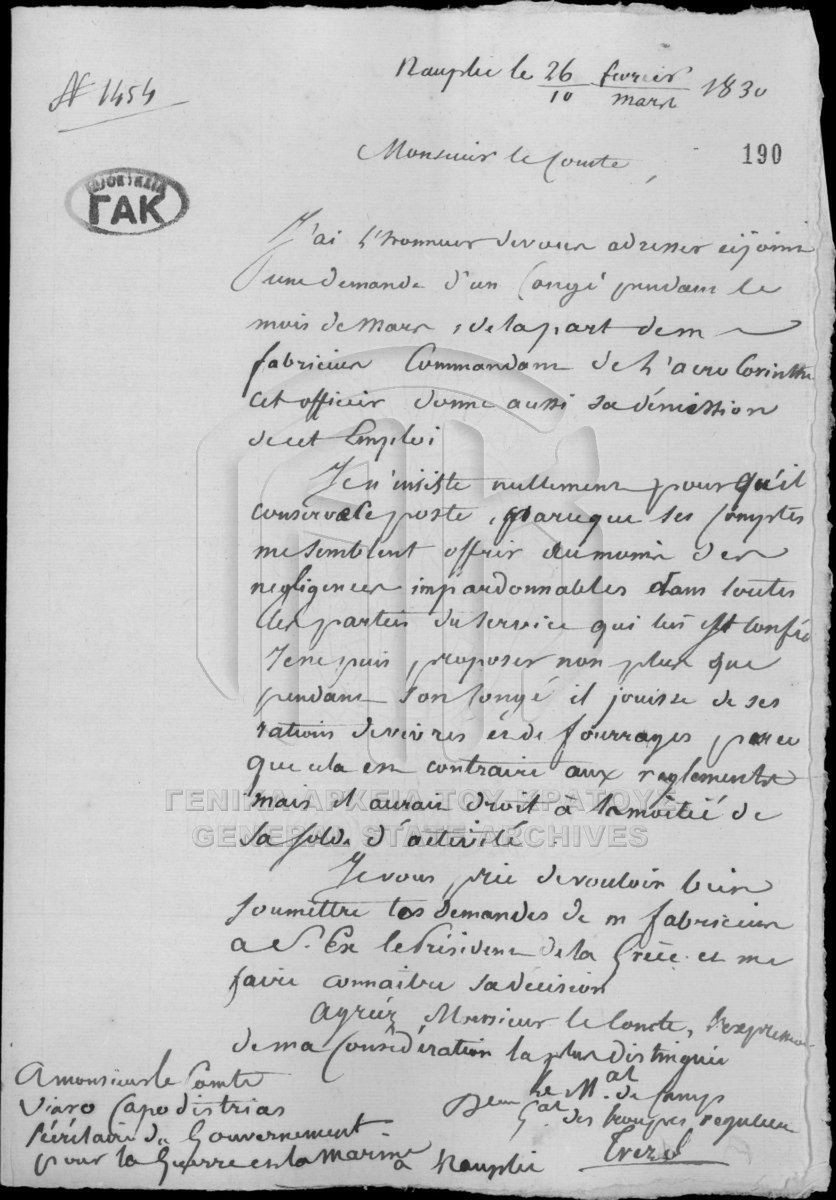 Nauplie le 26 fevrier 1830
10 mars
N 1454
Monsieur le Comte,
190
ΓΑΚ
J'ai l'honneur de vous adresser cijoint
une demande d'un Congé pendant le
mois de Mars, de la part de m
fabricius Commandant de l'acro Corinthe
cet officier donne aussi sa démission
de cet Emploi
Je n'insiste nullement pour qu'il
conserve le poste, parceque ses Comptes
me semblent offrir du moins des
negligences impardonnables dans toutes
les parties du service qui lui est confié
Je ne puis proposer non plus que
pendant son Congé il jouisse de ses
rations de vivres et de fourrages parce
que cela est contraire aux reglements
mais il aurait droit à la moitié de
sa solde d'activité.
ΓΕΝΙΚΑ ΑΡΧΕΙΑ ΤΟΥ ΚΡΑΤΟΥΣ
GENERAL STATE ARCHIVES
Je vous prie de vouloir bien
soumettre les demandes de m fabricius
a S. Ex le Président de la Grèce et me
faire connaitre sa décision
Agréez, Monsieur le Comte, l'expression
de ma Considération la plus distinguée
Le Mal de Camp
Gal des troupes regulieres
Trezel
A monsieur le Comte
Viaro Capodistrias
Sécrétaire du Gouvernement
pour la Guerre et la Marine
à Nauplie